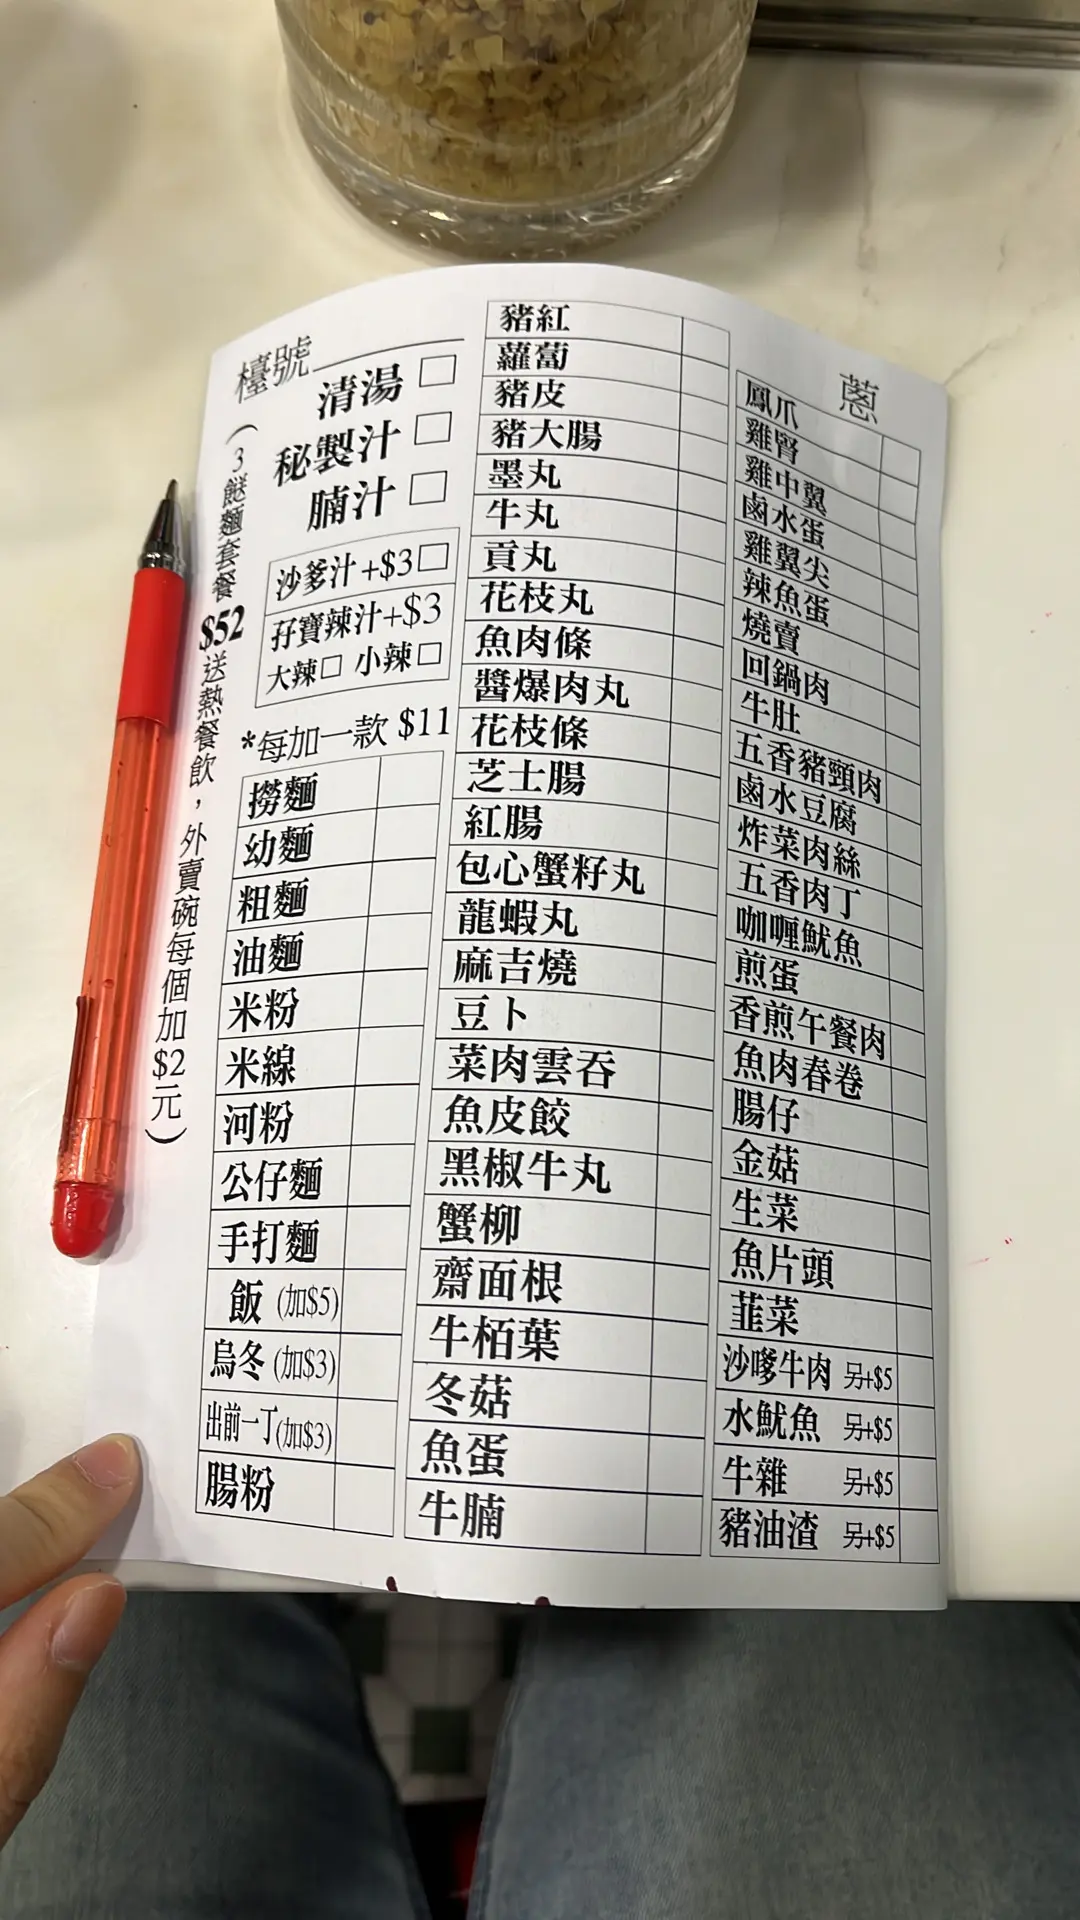 檯號
清湯 □
秘製汁 □
腩汁 □
(3餸麵套餐 $52 送熱餐飲，外賣碗每個加$2元)
沙爹汁+$3 □
孖寶辣汁+$3
大辣□ 小辣□
*每加一款 $11
撈麵
幼麵
粗麵
油麵
米粉
米線
河粉
公仔麵
手打麵
飯 (加$5)
烏冬 (加$3)
出前一丁(加$3)
腸粉
豬紅
蘿蔔
豬皮
豬大腸
墨丸
牛丸
貢丸
花枝丸
魚肉條
醬爆肉丸
花枝條
芝士腸
紅腸
包心蟹籽丸
龍蝦丸
麻吉燒
豆卜
菜肉雲吞
魚皮餃
黑椒牛丸
蟹柳
齋面根
牛栢葉
冬菇
魚蛋
牛腩
蔥
鳳爪
雞腎
雞中翼
鹵水蛋
雞翼尖
辣魚蛋
燒賣
回鍋肉
牛肚
五香豬頸肉
鹵水豆腐
炸菜肉絲
五香肉丁
咖喱魷魚
煎蛋
香煎午餐肉
魚肉春卷
腸仔
金菇
生菜
魚片頭
韮菜
沙嗲牛肉 另+$5
水魷魚 另+$5
牛雜 另+$5
豬油渣 另+$5